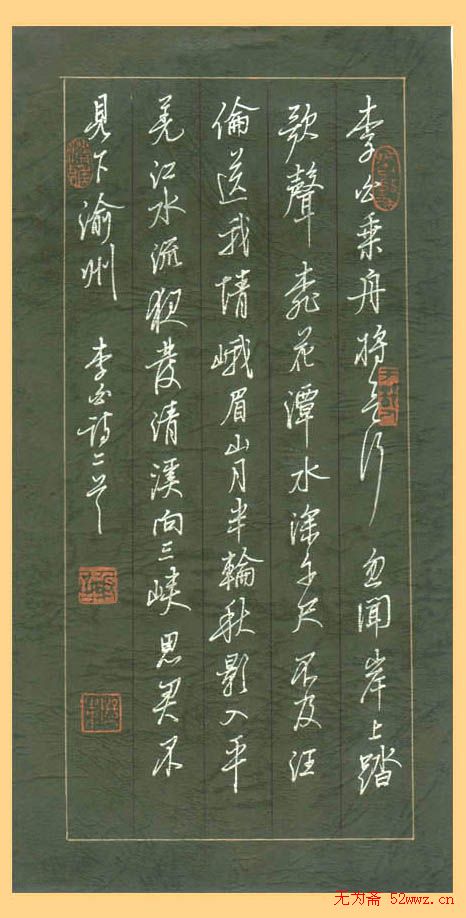 李白乘舟将欲行忽聞岸上踏
歌聲桃花潭水深千尺不及汪
倫送我情峨眉山月半輪秋影入平
羌江水流夜發清溪向三峡思君不
見下渝州 李白詩二首
无为斋 52wwz.cn